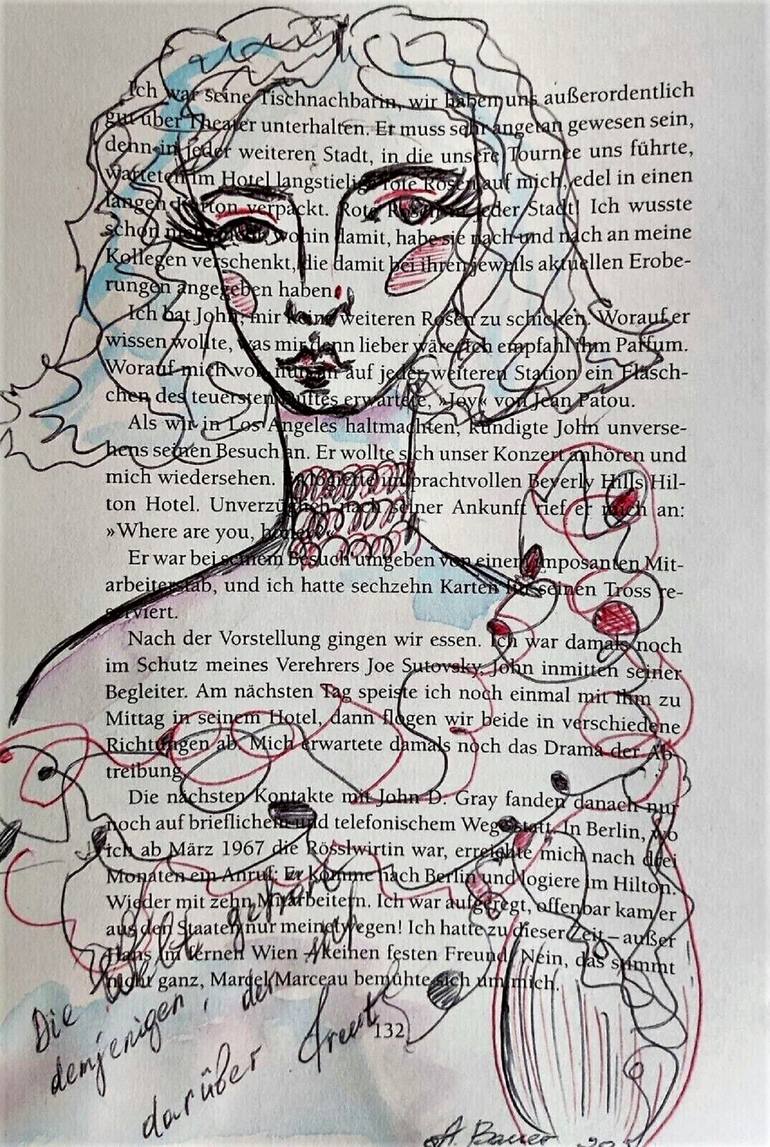 Ich war seine Tischnachbarin, wir haben uns außerordentlich
gut über Theater unterhalten. Er muss sehr angetan gewesen sein,
denn in jeder weiteren Stadt, in die unsere Tournee uns führte,
warteten im Hotel langstielige rote Rosen auf mich, edel in einen
langen Karton verpackt. Rote Rosen in jeder Stadt! Ich wusste
schon nicht mehr, wohin damit, habe sie nach und nach an meine
Kollegen verschenkt, die damit bei ihren jeweils aktuellen Erobe-
rungen angegeben haben.
Ich bat John, mir keine weiteren Rosen zu schicken. Worauf er
wissen wollte, was mir denn lieber wäre. Ich empfahl ihm Parfum.
Worauf mich von nun an auf jeder weiteren Station ein Fläsch-
chen des teuersten Duftes erwartete, »Joy« von Jean Patou.
Als wir in Los Angeles haltmachten, kündigte John unverse-
hens seinen Besuch an. Er wollte sich unser Konzert anhören und
mich wiedersehen. logierte im prachtvollen Beverly Hills Hil-
ton Hotel. Unverzüglich nach seiner Ankunft rief er mich an:
»Where are you,
Er war bei seinem Besuch umgeben von einem imposanten Mit-
arbeiterstab, und ich hatte sechzehn Karten für seinen Tross re-
serviert.
Nach der Vorstellung gingen wir essen. Ich war damals noch
im Schutz meines Verehrers Joe Sutovsky, John inmitten seiner
Begleiter. Am nächsten Tag speiste ich noch einmal mit ihm zu
Mittag in seinem Hotel, dann flogen wir beide in verschiedene
Richtungen ab. Mich erwartete damals noch das Drama der Ab-
treibung.
Die nächsten Kontakte mit John D. Gray fanden danach nur
noch auf brieflichem und telefonischem Weg statt. In Berlin, wo
ich ab März 1967 die Rösslwirtin war, erreichte mich nach drei
Monaten ein Anruf: Er komme nach Berlin und logiere im Hilton.
Wieder mit zehn Mitarbeitern. Ich war aufgeregt, offenbar kam er
aus den Staaten nur meinetwegen! Ich hatte zu dieser Zeit – außer
Hans im fernen Wien – keinen festen Freund. Nein, das stimmt
nicht ganz, Marcel Marceau bemühte sich um mich.
132
Die Welt gehört
demjenigen, der sich
darüber freut
A. Bauer